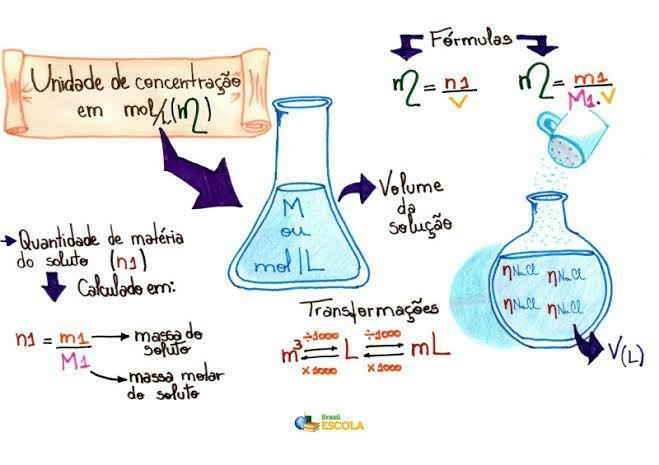 Unidade de concentração
em mol/L (M)
Fórmulas
M = n1/V
M = m1/M1.V
M
ou
mol/L
Volume
da
solução
→ Quantidade de matéria
do soluto (n1)
Calculado em:
n1 = m1/M1
massa do
soluto
massa molar
do soluto
Transformações
÷1000 ÷1000
m³ ⇄ L ⇄ mL
x 1000 x 1000
ηNaCl ηNaCl
ηNaCl ηNaCl
V(L)
Brasil
ESCOLA